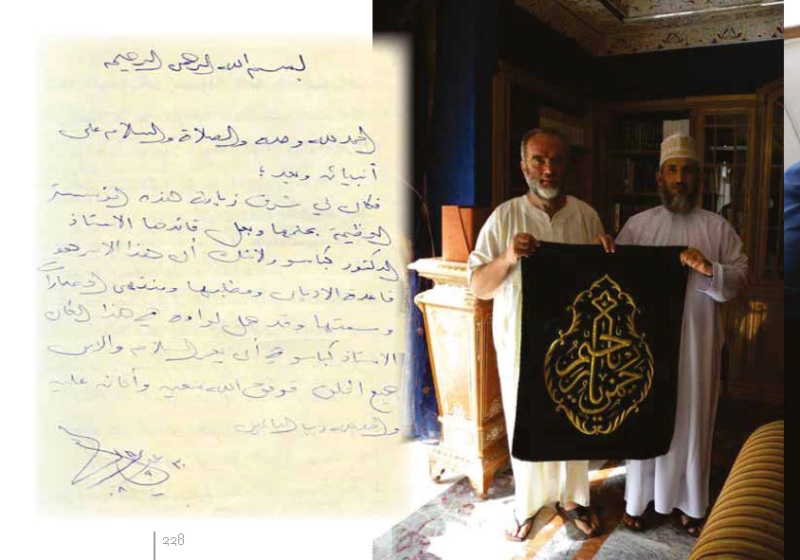 بسم الله الرحمن الرحيم
الحمد لله وحده والصلاة والسلام على
أنبيائه وبعد ؛
فكان لي شرف زيارة هذه المؤسسة
العظيمة بعلمها وبعمل قائدها الاستاذ
الدكتور كباسو ولاشك أن هذا الامر هو
قاعدة الاديان ومطلبها ومنتهى
وسعتها وقد حمل لواءه في هذا الكان
الاستاذ كباسو في أن يعم السلام والامن
جميع الخلق فوفق الله سعيه وأعانه عليه
والحمد لله رب العالمين
228